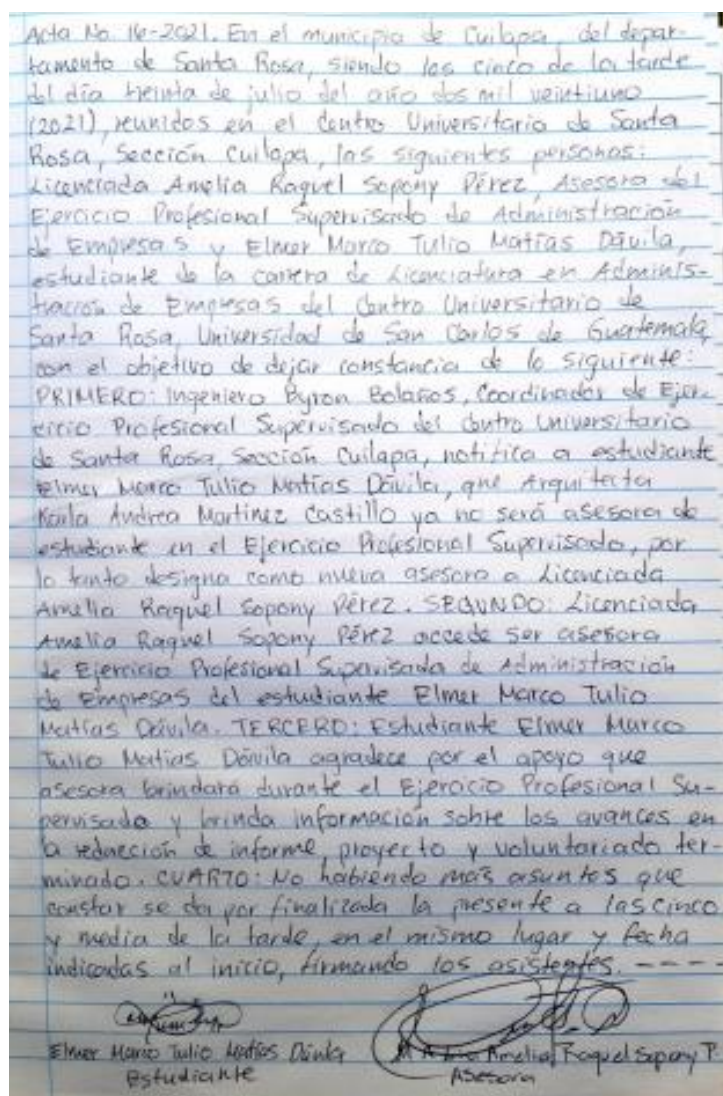 Acta No. 16-2021. En el municipio de Cuilapa, del depar-
tamento de Santa Rosa, siendo las cinco de la tarde
del día treinta de julio del año dos mil veintiuno
(2021), reunidos en el Centro Universitario de Santa
Rosa, Sección Cuilapa, las siguientes personas:
Licenciada Amelia Raquel Sopony Pérez, Asesora del
Ejercicio Profesional Supervisado de Administración
de Empresas y Elmer Marco Tulio Matías Dávila,
estudiante de la carrera de Licenciatura en Adminis-
tración de Empresas del Centro Universitario de
Santa Rosa, Universidad de San Carlos de Guatemala,
con el objetivo de dejar constancia de lo siguiente:
PRIMERO: Ingeniero Byron Bolaños, Coordinador de Ejer-
cicio Profesional Supervisado del Centro Universitario
de Santa Rosa, Sección Cuilapa, notifica a estudiante
Elmer Marco Tulio Matías Dávila, que Arquitecta
Karla Andrea Martinez Castillo ya no será asesora de
estudiante en el Ejercicio Profesional Supervisado, por
lo tanto designa como nueva asesora a Licenciada
Amelia Raquel Sopony Pérez. SEGUNDO: Licenciada
Amelia Raquel Sopony Pérez accede ser asesora
de Ejercicio Profesional Supervisado de Administración
de Empresas del estudiante Elmer Marco Tulio
Matías Dávila. TERCERO: Estudiante Elmer Marco
Tulio Matías Dávila agradece por el apoyo que
asesora brindará durante el Ejercicio Profesional Su-
pervisado y brinda información sobre los avances en
la redacción de informe, proyecto y voluntariado ter-
minado. CUARTO: No habiendo más asuntos que
constar se da por finalizada la presente a las cinco
y media de la tarde, en el mismo lugar y fecha
indicadas al inicio, firmando los asistentes. - - - -
Elmer Marco Tulio Matías Dávila Amelia Raquel Sopony P.
Estudiante Asesora